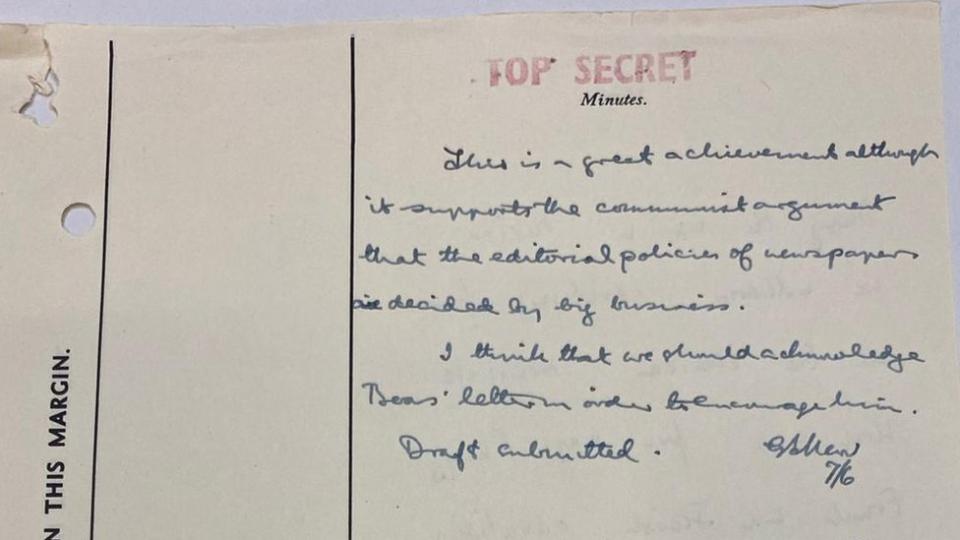 TOP SECRET
Minutes.
This is a great achievement although
it supports the communist argument
that the editorial policies of newspapers
are decided by big business.
I think that we should acknowledge
letter in order to encourage him.
Draft submitted.
7/6
N THIS MARGIN.